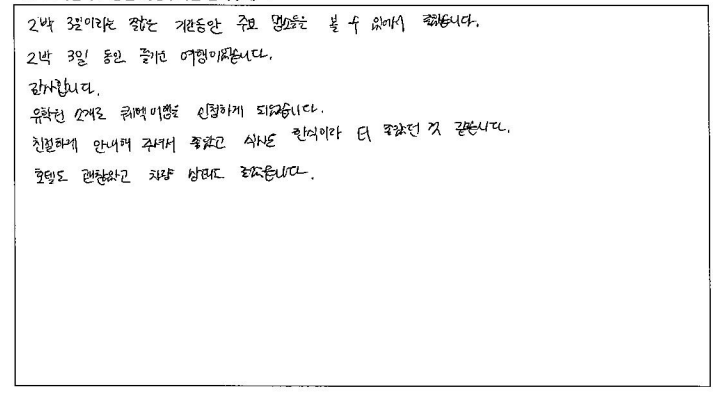 2박 3일이라는 짧은 기간동안 주요 명소들을 볼 수 있어서 좋았습니다.
2박 3일 동안 즐거운 여행이었습니다.
감사합니다.
유학원 소개로 퀘백여행을 신청하게 되었습니다.
친절하게 안내해 주셔서 좋았고 식사도 한식이라 더 좋았던 것 같습니다.
호텔도 괜찮았고 차량 상태도 좋았습니다.